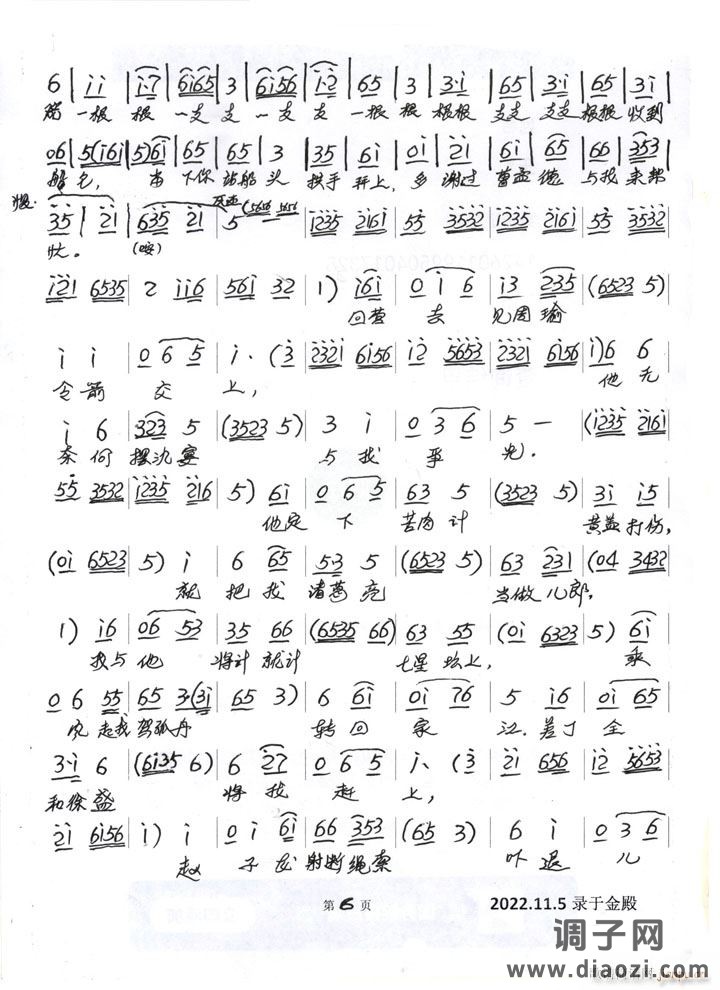 6 | i i | i·7 | 6i65 | 3 | 6i56 | i2 | 65 | 3 | 3·i | 65 | 3·i | 65 | 3i |
箭 一根 根 一支 支 一支 支 一根 根 根根 支支 支支 根根 收到
06 | 5(i6i | 5)6i | 65 | 65 | 3 | 35 | 6i | 0i | 2i | 6i | 65 | 66 | 353 |
船仓, 下你 站船 头 拱手 拜上, 多 谢过 曹孟德 与我 来帮
慢.
35 | 2i | 635 2i | 5 (5656 5656 | i235 2i6i | 55 3532 | i235 2i6i | 55 3532
忙。 (安)
i2i 6535 | 2 ii6 | 56i 32 | 1) i6i | 0 i 6 | i3 235 | (6523 5)
回营 去 见周瑜
i i | 0 6 5 | i· (3 | 232i 6i56 | i2 5653 | 232i 6i56 | i) 6 6
令箭 交 上, 他无
i 6 | 323 5 | (3523 5) | 3 i | 0 3 6 | 5 — | (i235 2i6i
奈何 摆沉宴 与我 争 光.
55 3532 | i235 2i6 | 5) 6i | 0 6 5 | 63 5 | (3523 5) | 3i i5
他定 下 苦肉计 黄盖打伤,
(0i 6523 | 5) i | 6 65 | 53 5 | (6523 5) | 63 231 | (04 3432
就 把我 诸葛亮 当做儿郎,
1) i6 | 06 53 | 35 66 | (6535 66) | 63 55 | (0i 6323 | 5) 6i
我与 他 将计就计 七星坛上, 乘
0 6 55 | 65 3·(3i | 65 3) | 6 6i | 0i 76 | 5 i6 | 0i 65
风 起我 驾孤舟 转回 家 江.差丁 全
3·i 6 | (6i35 6) | 6 27 | 0 6 5 | i· (3 | 2i 656 | i2 5653
和徐盛 将我 赶 上,
2i 6i56 | i) i | 0 i 6i | 66 353 | (65 3) | 6 i | 0 3 6
赵 子龙 射断绳索 吓退 儿
第 6 页 2022.11.5 录于金殿
调子网
www.diaozi.com